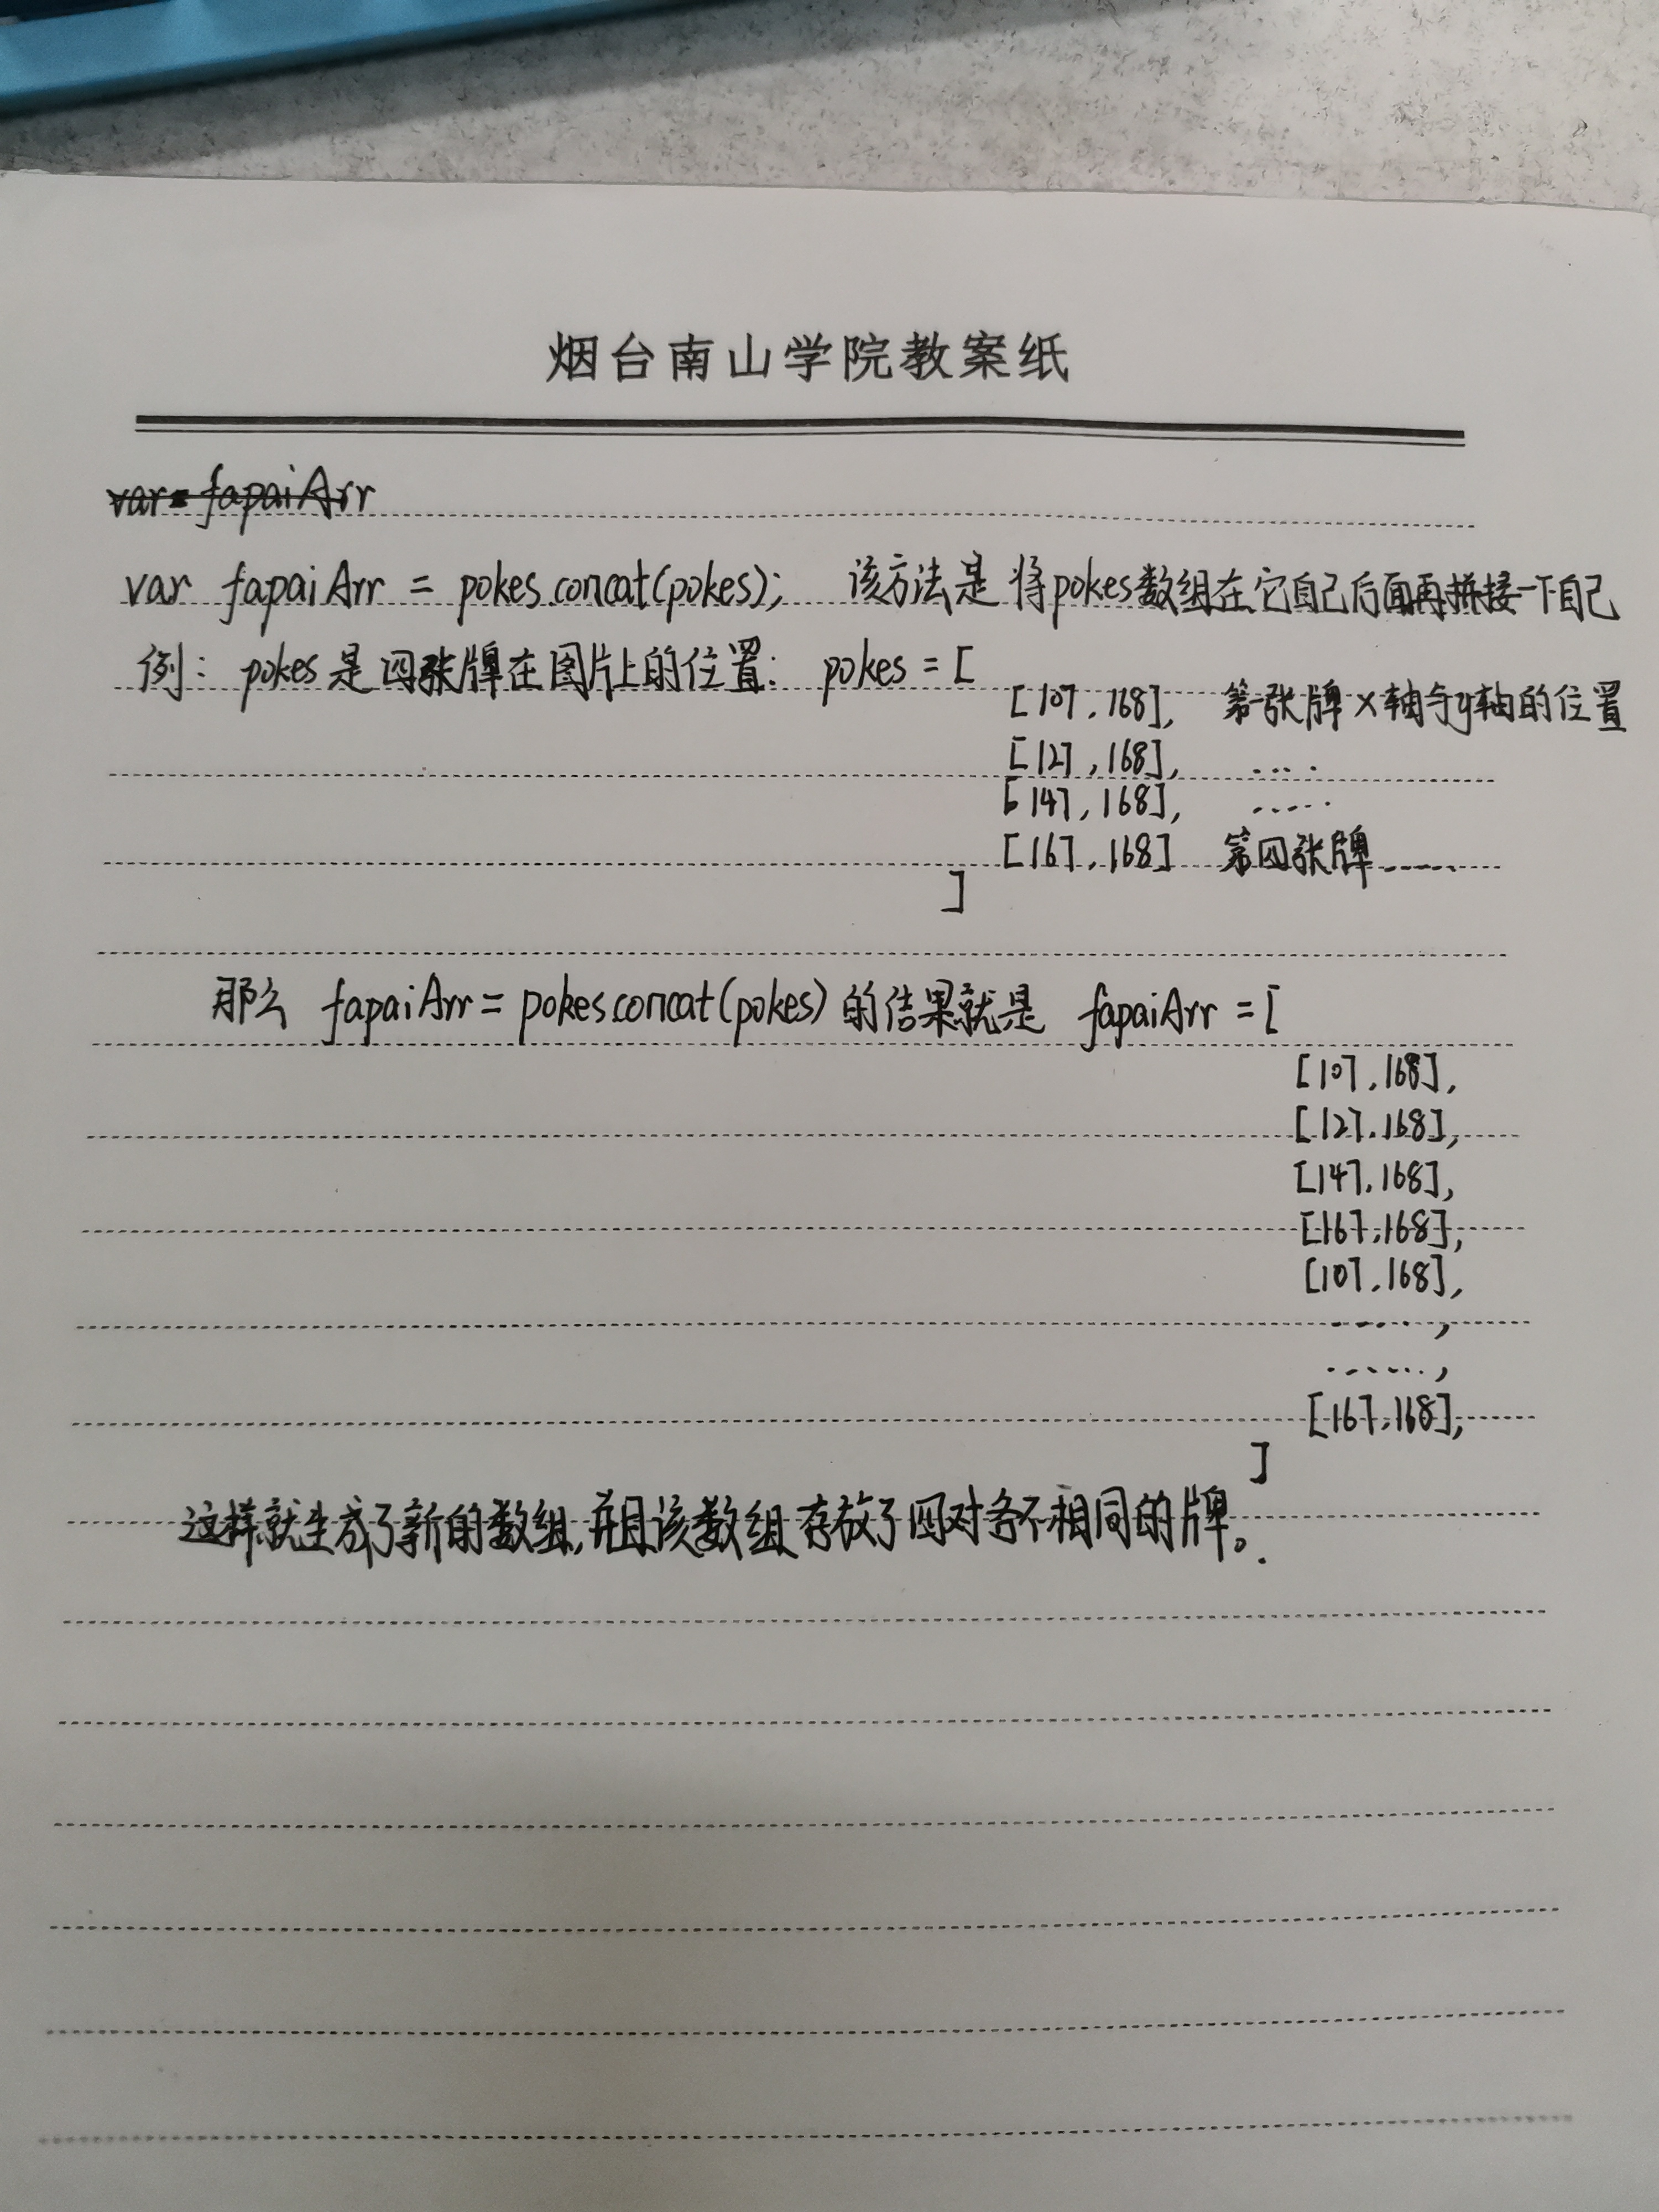 烟台南山学院教案纸
var fapaiArr
var fapaiArr = pokes.concat(pokes); 该方法是将pokes数组在它自己后面再拼接一下自己
例: pokes是四张牌在图片上的位置: pokes = [
[107, 168], 第一张牌 x轴与y轴的位置
[127, 168], ....
[147, 168], .....
[167, 168] 第四张牌......
]
那么 fapaiArr = pokes.concat(pokes) 的结果就是 fapaiArr = [
[107, 168],
[127, 168],
[147, 168],
[167, 168],
[107, 168],
....,
......,
[167, 168],
]
这样就生成了新的数组,并且该数组存放了四对各不相同的牌。